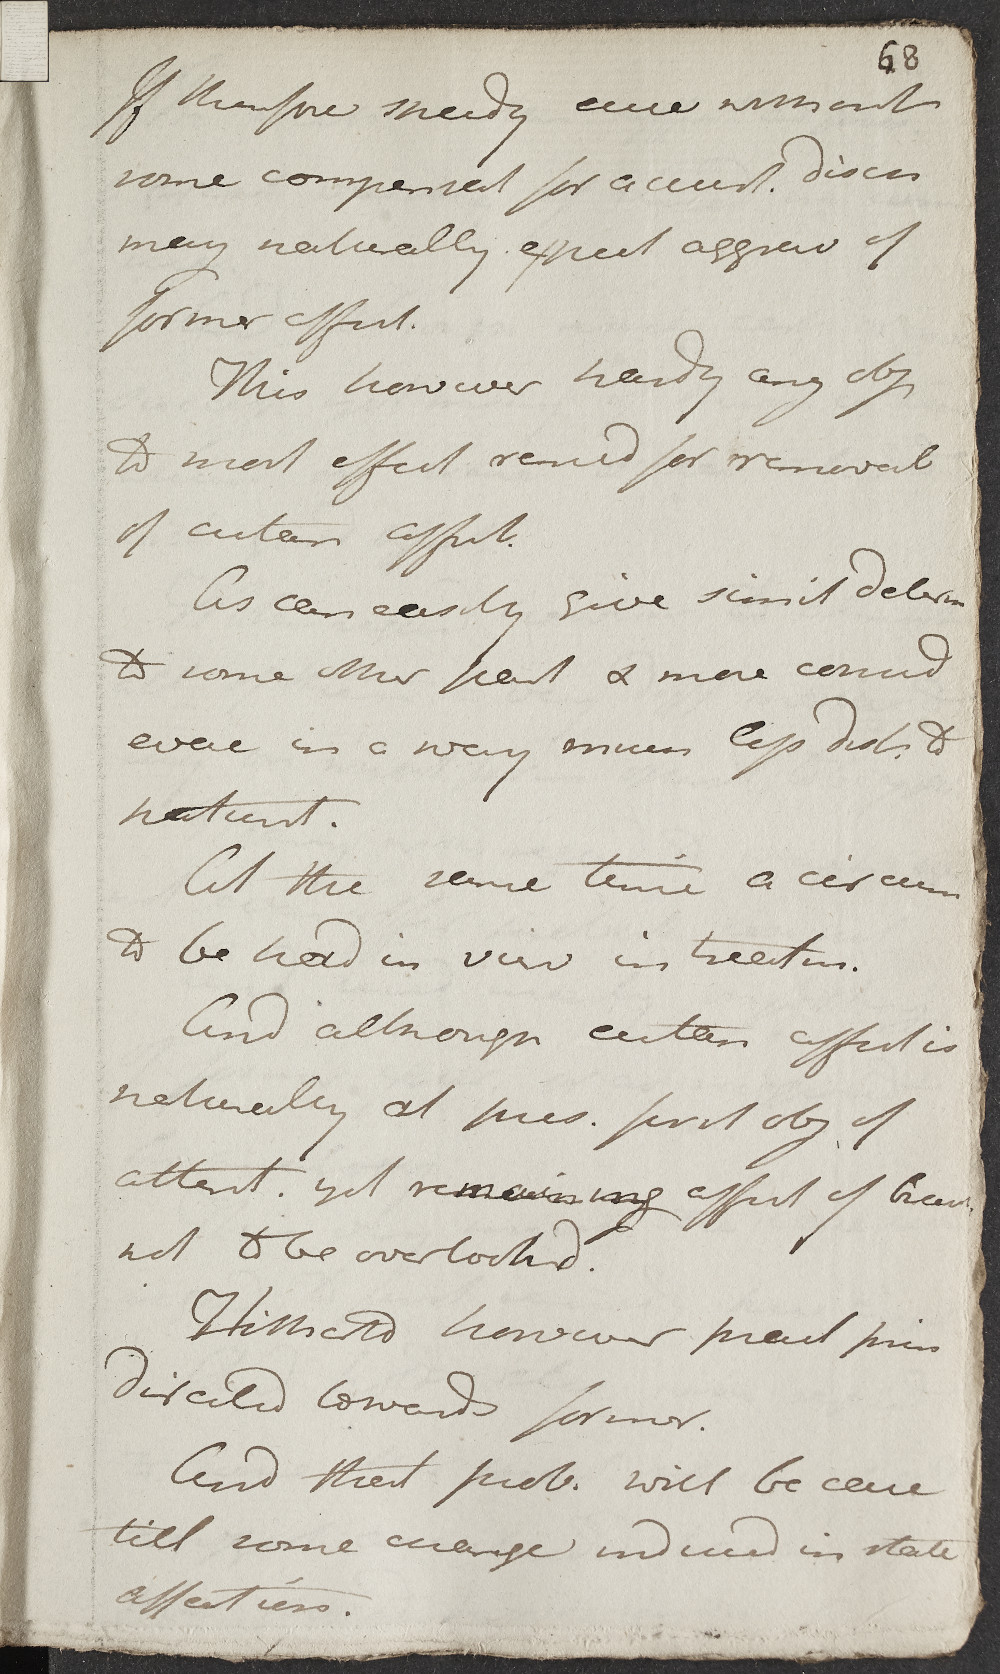 68
If therefore speedy cure without
some compensat for accust. discs
may naturally expect aggrav of
former affect.
This however hardly any obj
to most effect remed for removal
of cutan affect.
As can easily give simil determ
to some other part & more convend
even in a way much less dist. to
patient.
At the same time a circum
to be had in view in treatm.
And although cutan affect is
naturally at pres. first obj of
attent. yet remaining affect of brea.
not to be overlooked.
Hitherto however pract prin
directed towards former.
And that prob. will be case
till some change induced in state
affections.